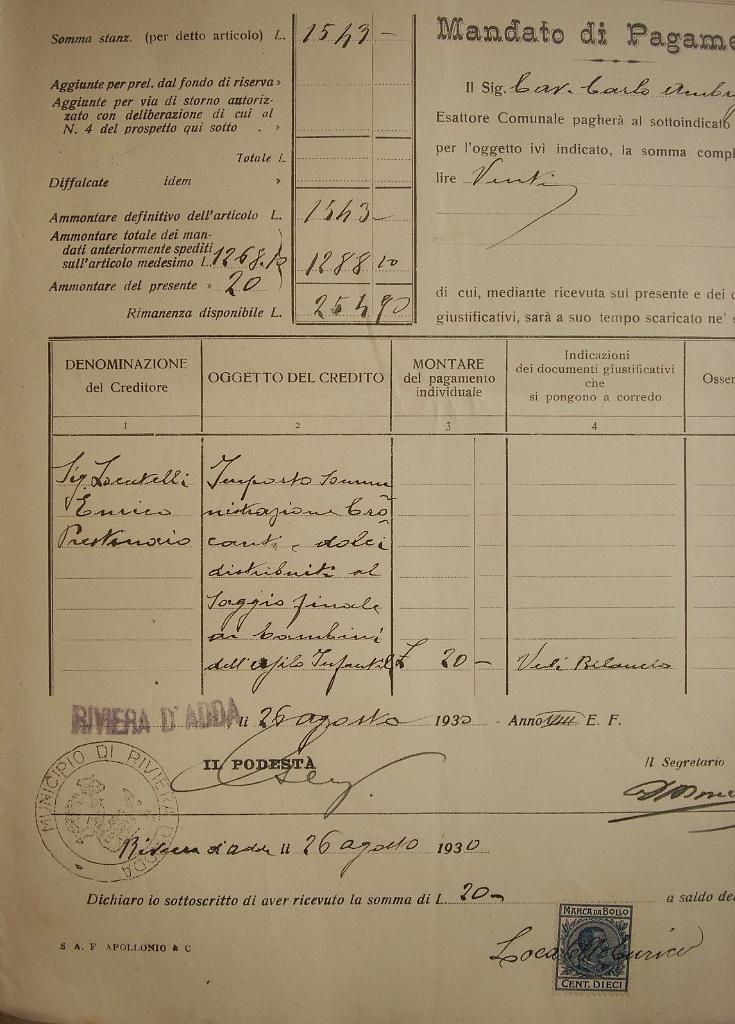 Somma stanz. (per detto articolo) L. 1543 —
Aggiunte per prel. dal fondo di riserva »
Aggiunte per via di storno autoriz-
zato con deliberazione di cui al
N. 4 del prospetto qui sotto . »
Totale L
Diffalcate idem »
Ammontare definitivo dell'articolo L. 1543 —
Ammontare totale dei man-
dati anteriormente spediti
sull'articolo medesimo L. 1268.10
1288 10
Ammontare del presente » 20
Rimanenza disponibile L. 254 90
Mandato di Pagame
Il Sig. Cav. Carlo Ambr
Esattore Comunale pagherà al sottoindicato
per l'oggetto ivi indicato, la somma compl
lire Venti
di cui, mediante ricevuta sul presente e dei d
giustificativi, sarà a suo tempo scaricato ne' s
DENOMINAZIONE
del Creditore
OGGETTO DEL CREDITO
MONTARE
del pagamento
individuale
Indicazioni
dei documenti giustificativi
che
si pongono a corredo
Osser
1 2 3 4
Sig. Locatelli
Enrico
Prestinaio
Importo sommi
nistrazione Cro
canti e dolci
distribuiti al
Saggio finale
ai bambini
dell'asilo Infantile
£ 20 —
Vedi Bilancio
RIVIERA D'ADDA, li 26 agosto 1930 - Anno VIII E. F.
IL PODESTÀ
Il Segretario
MUNICIPIO DI RIVIERA D'ADDA
Riviera d'adda li 26 agosto 1930
Dichiaro io sottoscritto di aver ricevuto la somma di L. 20 — a saldo de
MARCA DA BOLLO
CENT. DIECI
Locatelli Enrico
S A. F APOLLONIO & C